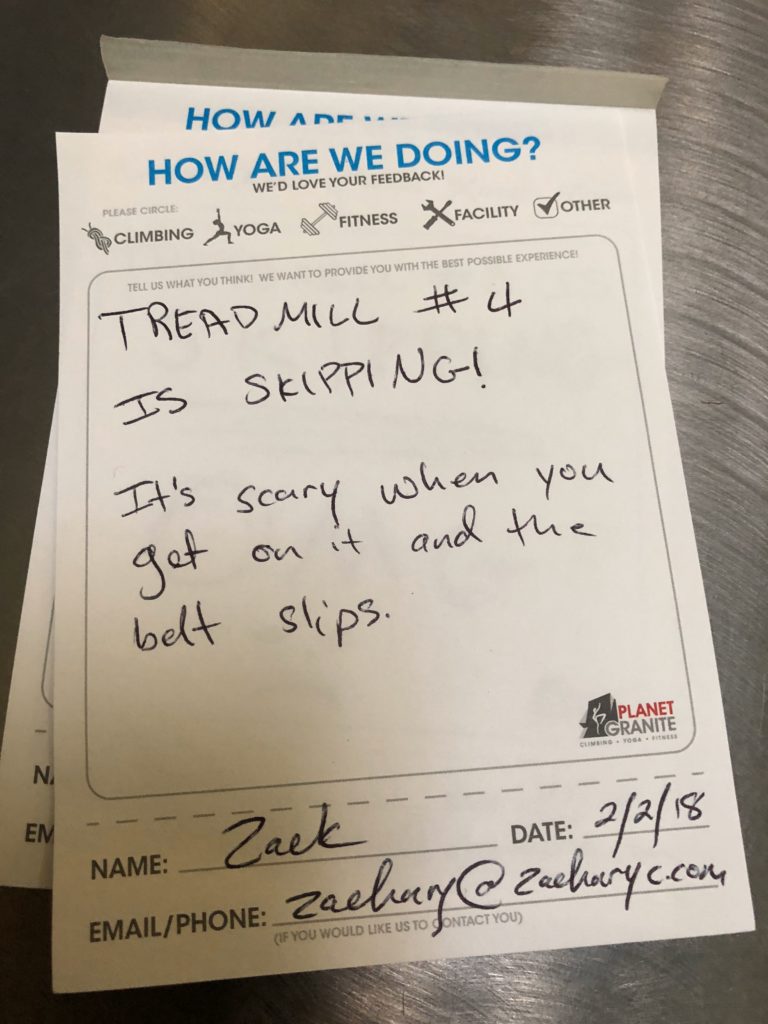 HOW ARE WE
HOW ARE WE DOING?
WE'D LOVE YOUR FEEDBACK!
PLEASE CIRCLE:
CLIMBING YOGA FITNESS FACILITY OTHER
TELL US WHAT YOU THINK! WE WANT TO PROVIDE YOU WITH THE BEST POSSIBLE EXPERIENCE!
TREADMILL #4
IS SKIPPING!
It's scary when you
get on it and the
belt slips.
PLANET
GRANITE
CLIMBING • YOGA • FITNESS
NAME: Zack DATE: 2/2/18
EMAIL/PHONE: zachary@zacharyc.com
(IF YOU WOULD LIKE US TO CONTACT YOU)
NA
EM